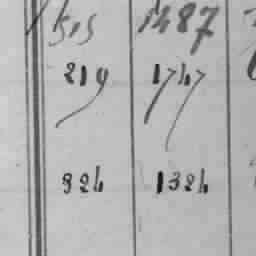 515 1487
219 1747
324 1324